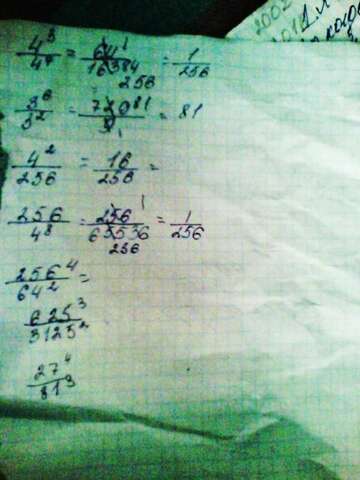 2002
4³/4⁷ = 64/16384 = 1/256
1
256
3⁶/3² = 729/9 = 81
81
1
4²/256 = 16/256 =
256/4⁸ = 256/65536 = 1/256
1
256
256⁴/64² =
625³/3125²
27⁴/81³